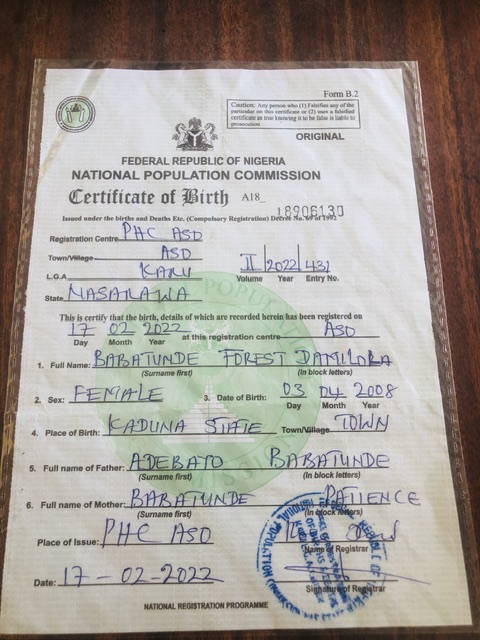 Form B.2
Caution: Any person who (1) Falsifies any of the
particular on this certificate or (2) uses a falsified
certificate as true knowing it to be false is liable to
prosecution
ORIGINAL
FEDERAL REPUBLIC OF NIGERIA
NATIONAL POPULATION COMMISSION
Certificate of Birth A18_ 18906130
Issued under the births and Deaths Etc. (Compulsory Registration) Decree No. 69 of 1992
Registration Centre PHC ASO
Town/Village ASO
L.G.A KARU II 2022 431
Volume Year Entry No.
State NASARAWA
This is certify that the birth, details of which are recorded herein has been registered on
17 02 2022 at this registration centre ASO
Day Month Year
1. Full Name: BABATUNDE FOREST DAMILOLA
(Surname first) (In block letters)
2. Sex: FEMALE 3. Date of Birth: 03 04 2008
Day Month Year
4. Place of Birth: KADUNA STATE Town/Village TOWN
5. Full name of Father: ADEBAYO BABATUNDE
(Surname first) (In block letters)
6. Full name of Mother: BABATUNDE PATIENCE
(Surname first) (In block letters)
Place of Issue: PHC ASO
Name of Registrar
Date: 17-02-2022
Signature of Registrar
NATIONAL REGISTRATION PROGRAMME